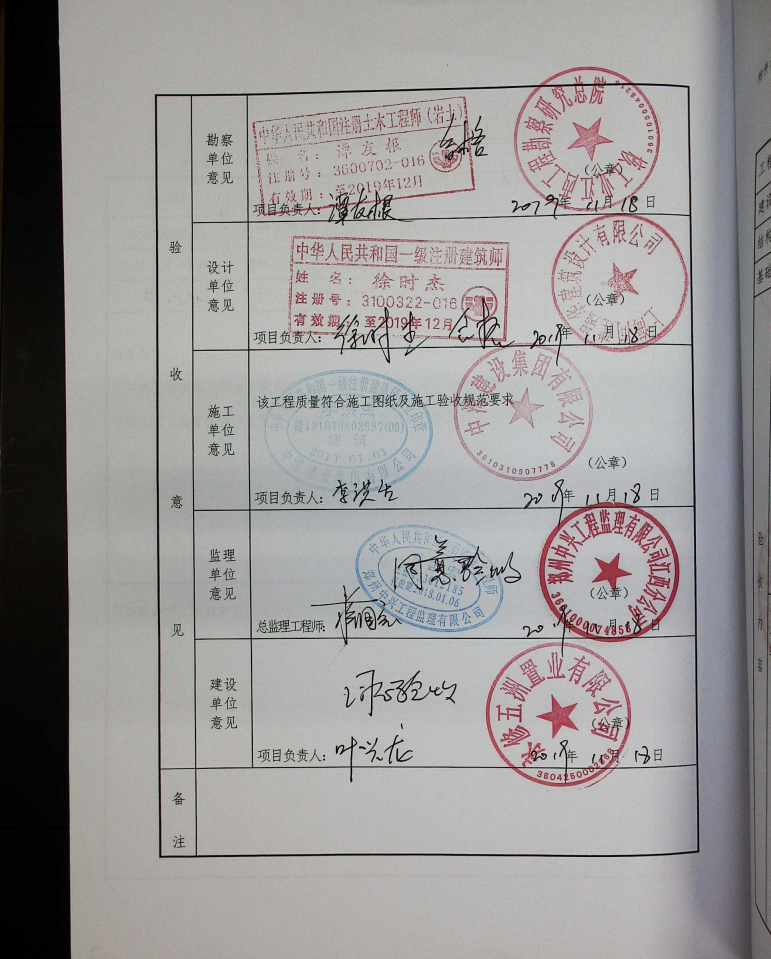 验收意见
勘察单位意见
中华人民共和国注册土木工程师（岩土）
姓名：谭友根
注册号：3600702-016
有效期：至2019年12月
合格
核工业江西工程勘察研究总院
（公章）
项目负责人：谭友根
2019年11月18日
设计单位意见
中华人民共和国一级注册建筑师
姓名：徐时杰
注册号：3100322-016
有效期：至2019年12月
建筑设计有限公司
（公章）
项目负责人：徐时杰 合格
2019年11月18日
施工单位意见
该工程质量符合施工图纸及施工验收规范要求
建筑
建设集团有限公司
3610310907778
（公章）
项目负责人：李洪生
2019年11月18日
监理单位意见
中华人民共和
郑州中兴工程监理有限公司
2018.01.06
同意验收
郑州中兴工程监理有限公司江西分公司
（公章）
总监理工程师：
2019年11月18日
建设单位意见
同意验收
修五洲置业有限公司
（公章）
项目负责人：叶兴龙
2019年11月18日
备注